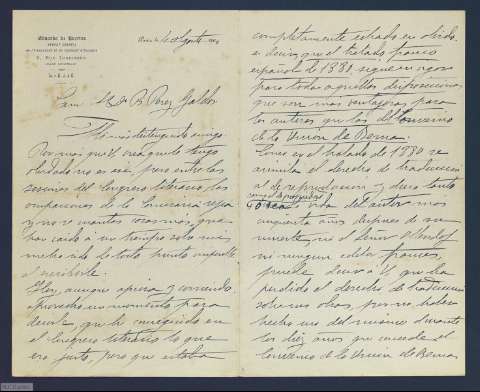 Paris 10 Agosto
PARIS
Sr. D. B. Perez Galdós
Mi más distinguido amigo.
Por más que V. crea que le tengo
olvidado no es así, pero entre las
sesiones del Congreso literario, las
y no se cuantas cosas más, que
han caido á un tiempo sobre mi,
me ha sido de todo punto imposible
el escribirle.
Hoy, aunque aprisa y corriendo
aprovecho un momento para
decirle, que he conseguido en
el Congreso literario lo que
era justo, pero que estaba
completamente echado en olvido
es decir, que el tratado franco
español de 1880, sigue en vigor
para todas aquellas disposiciones
que son mas ventajosas para
los autores que las del Convenio
de la Unión de Berna.
Como en el tratado de 1880 se
asimila el derecho de traduccion
al de reproduccion y dura tanto
vida del autor mas
cincuenta años despues de su
muerte, ni el Señor
ni ningun editor frances,
puede decir á V. que ha
perdido el derecho de traduccion
sobre sus obras, por no haber
hecho uso del mismo durante
los diez años que concede el
Convenio de la Unión de Berna